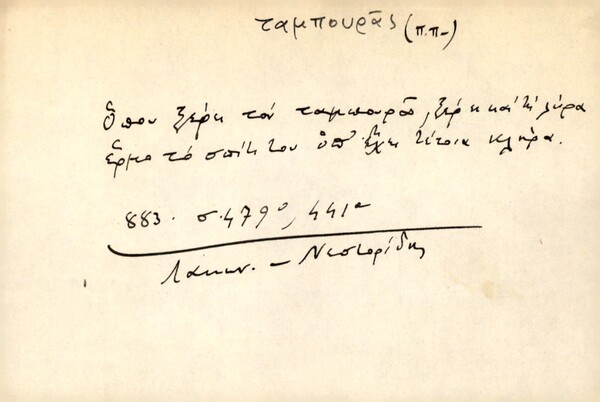 ταμπουρᾶς (π.π-)
Ὅπου ξέρῃ τὸν ταμπουρᾶ, ξέρῃ καὶ τὴ λύρα
ἔρμο τὸ σπίτι του ὁπ' ἔχει τέτοια κλῆρα.
883. σ. 479, 441α
Λακων. – Νεστορίδης